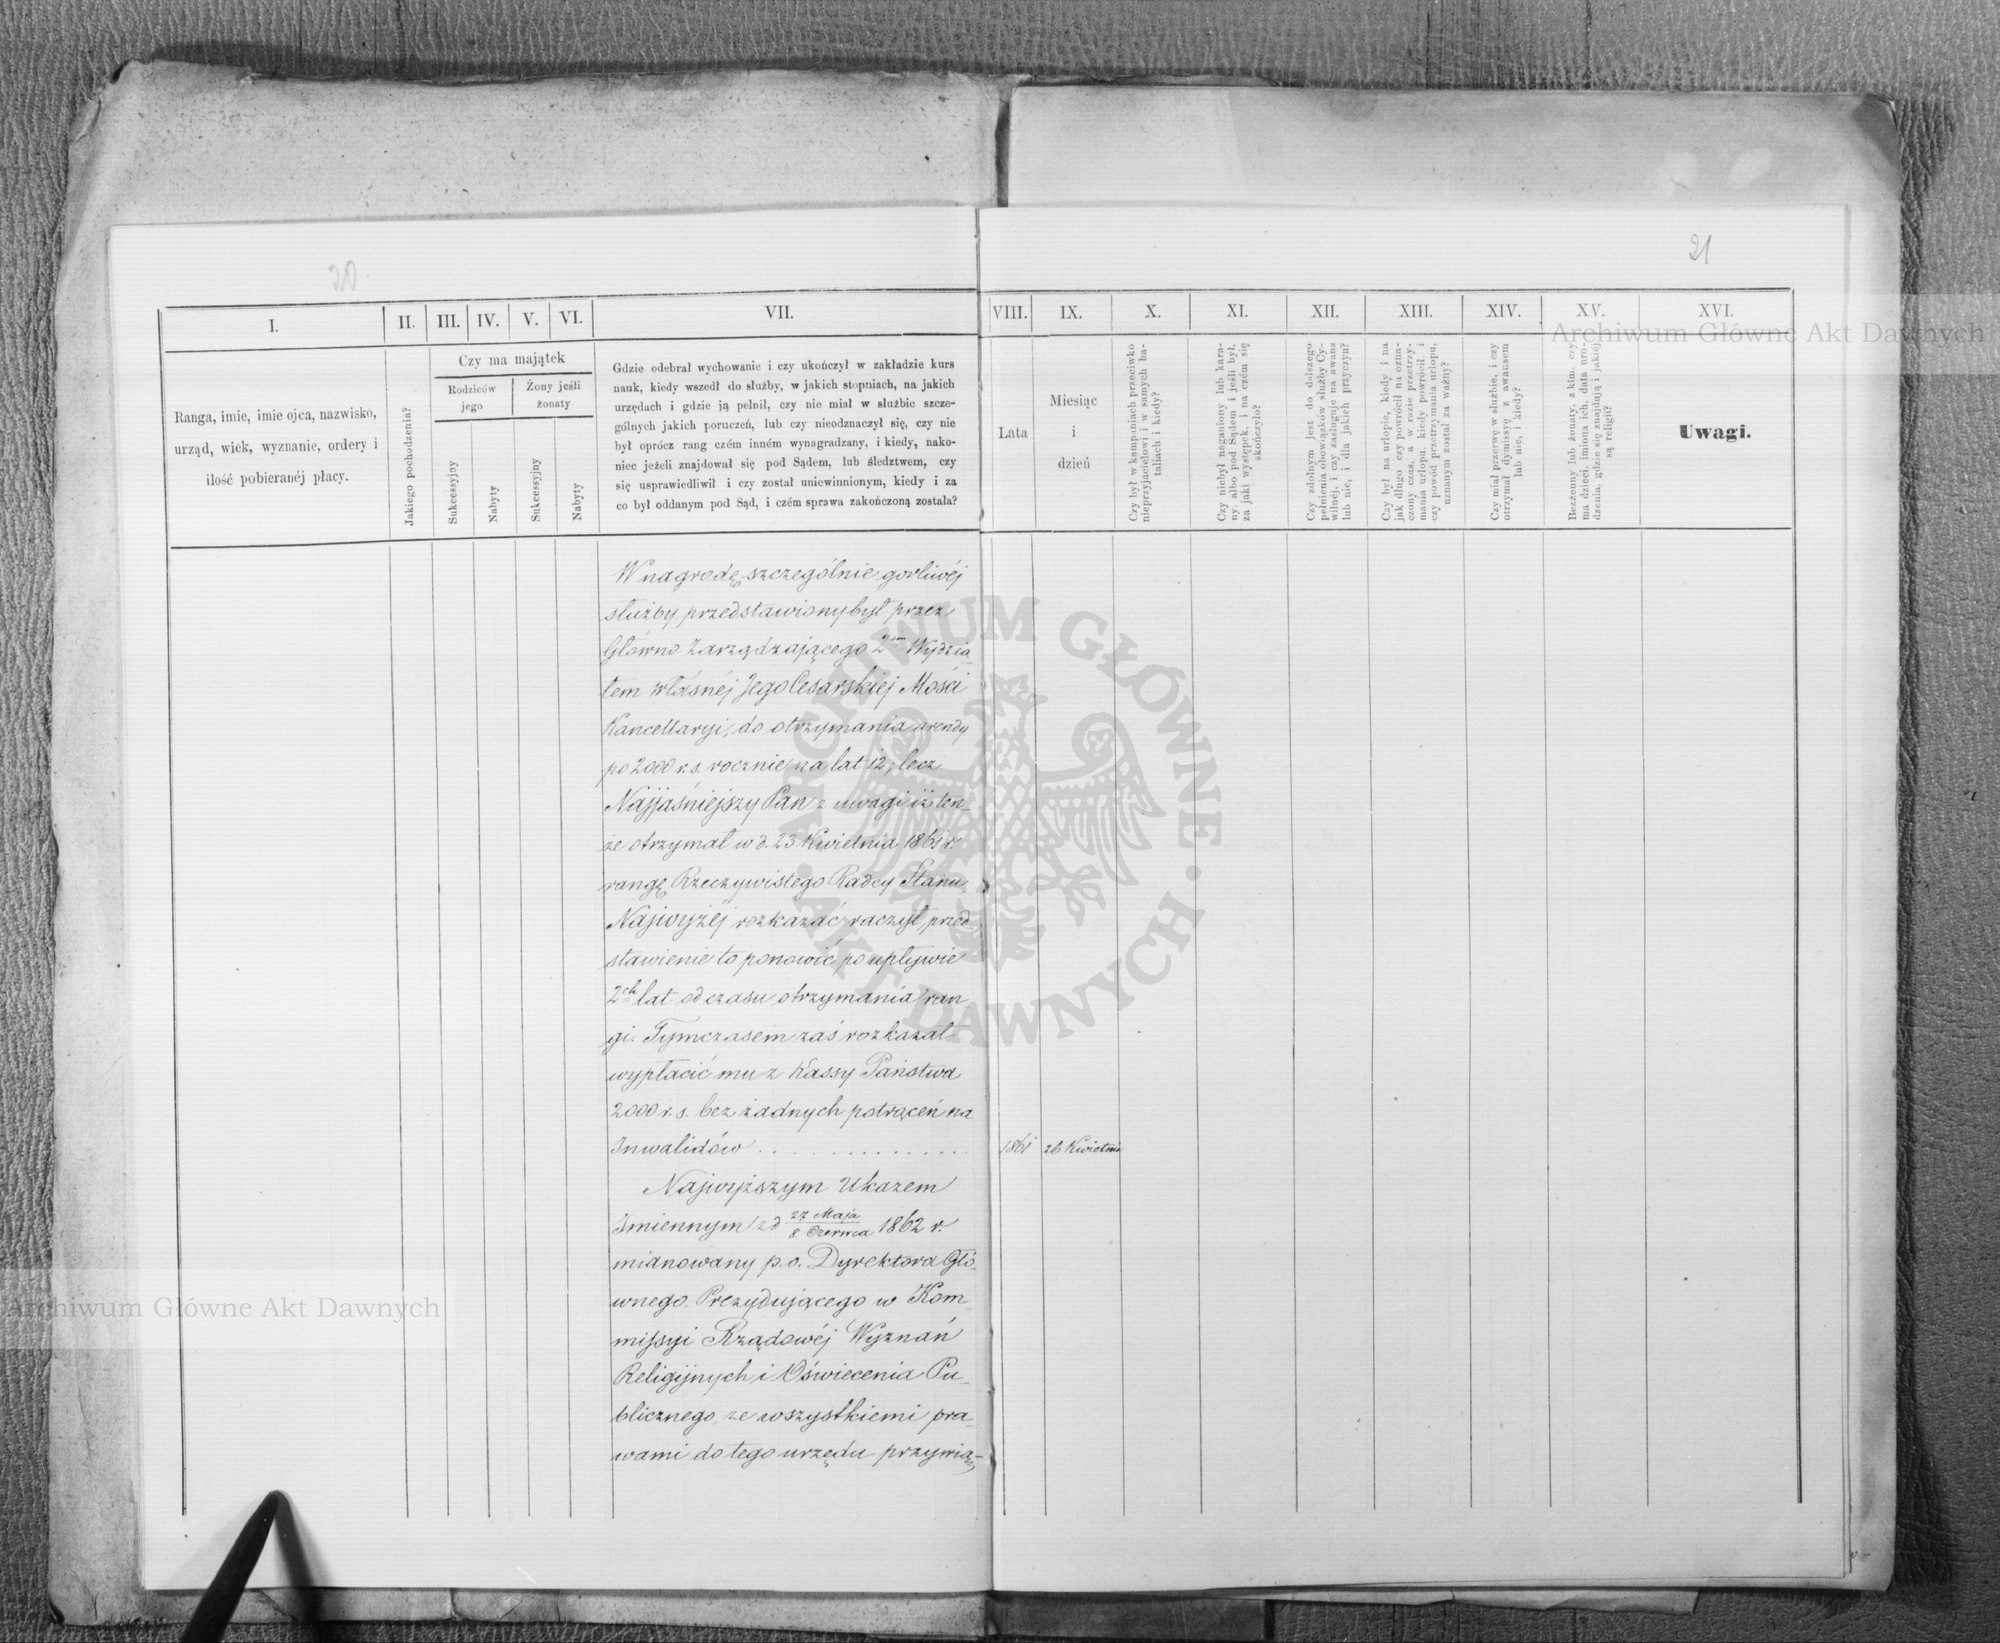 20
21
I.
II.
III.
IV.
V.
VI.
VII.
VIII.
IX.
X.
XI.
XII.
XIII.
XIV.
XV.
XVI.
Ranga, imie, imie ojca, nazwisko,
urząd, wiek, wyznanie, ordery i
ilość pobieranéj płacy.
Jakiego pochodzenia?
Czy ma majątek
Rodziców
jego
Żony jeśli
żonaty
Sukcessyjny
Nabyty
Sukcessyjny
Nabyty
Gdzie odebrał wychowanie i czy ukończył w zakładzie kurs
nauk, kiedy wszedł do służby, w jakich stopniach, na jakich
urzędach i gdzie ją pełnił, czy nie miał w służbie szcze-
gólnych jakich poruczeń, lub czy nieodznaczył się, czy nie
był oprócz rang czém inném wynagradzany, i kiedy, nako-
niec jeżeli znajdował się pod Sądem, lub śledztwem, czy
się usprawiedliwił i czy został uniewinnionym, kiedy i za
co był oddanym pod Sąd, i czém sprawa zakończoną została?
Lata
Miesiąc
i
dzień
Czy był w kampaniach przeciwko
nieprzyjacielowi i w samych ba-
taliach i kiedy?
Czy niebył naganiony lub kara-
ny, albo pod Sądem i jeśli był,
za jaki występek, i na czém się
skończyło?
Czy zdolnym jest do dalszego
pełnienia obowiązków służby Cy-
wilnéj, i czy zasługuje na awans
lub nie, i dla jakich przyczyn?
Czy był na urlopie, kiedy i na
jak długo czy powrócił na ozna-
czony czas, a w razie przetrzy-
mania urlopu, kiedy powrócił, i
czy powód przetrzymania urlopu,
uznanym został za ważny?
Czy miał przerwę w służbie, i czy
otrzymał dymissyę z awansem
lub nie, i kiedy?
Bezżenny lub żonaty, z kim, czy
ma dzieci, imiona ich, data uro-
dzenia, gdzie się znajdują i jakiéj
są religii?
Uwagi.
W nagrodę szczególnie gorliwéj
służby przedstawiony był przez
Główno Zarządzającego 2im Wydzia-
łem własnéj Jego Cesarskiéj Mości
Kancellaryi, do otrzymania arendy
po 2000 r.s. rocznie na lat 12, lecz
Najjaśniejszy Pan z uwagi iż ten-
że otrzymał w d. 23 Kwietnia 1861 r.
rangę Rzeczywistego Radcy Stanu,
Najwyżéj rozkazać raczył, przed-
stawienie to ponowić po upływie
2ch lat od czasu otrzymania ran
gi. Tymczasem zaś rozkazał
wypłacić mu z Kassy Państwa
2000 r. s. bez żadnych potrąceń na
Inwalidów . . . . . . . . . . . . . .
1861
26 Kwietnia
Najwyższym Ukazem
Imiennym z d 27 Maja / 8 Czerwca 1862 r.
mianowany p.o. Dyrektora Głó-
wnego Prezydującego w Kom-
missyi Rządowéj Wyznań
Religijnych i Oświecenia Pu-
blicznego, ze wszystkiemi pra-
wami do tego urzędu przywią-
Archiwum Główne Akt Dawnych
Archiwum Główne Akt Dawnych
ARCHIWUM GŁÓWNE · AKT DAWNYCH ·